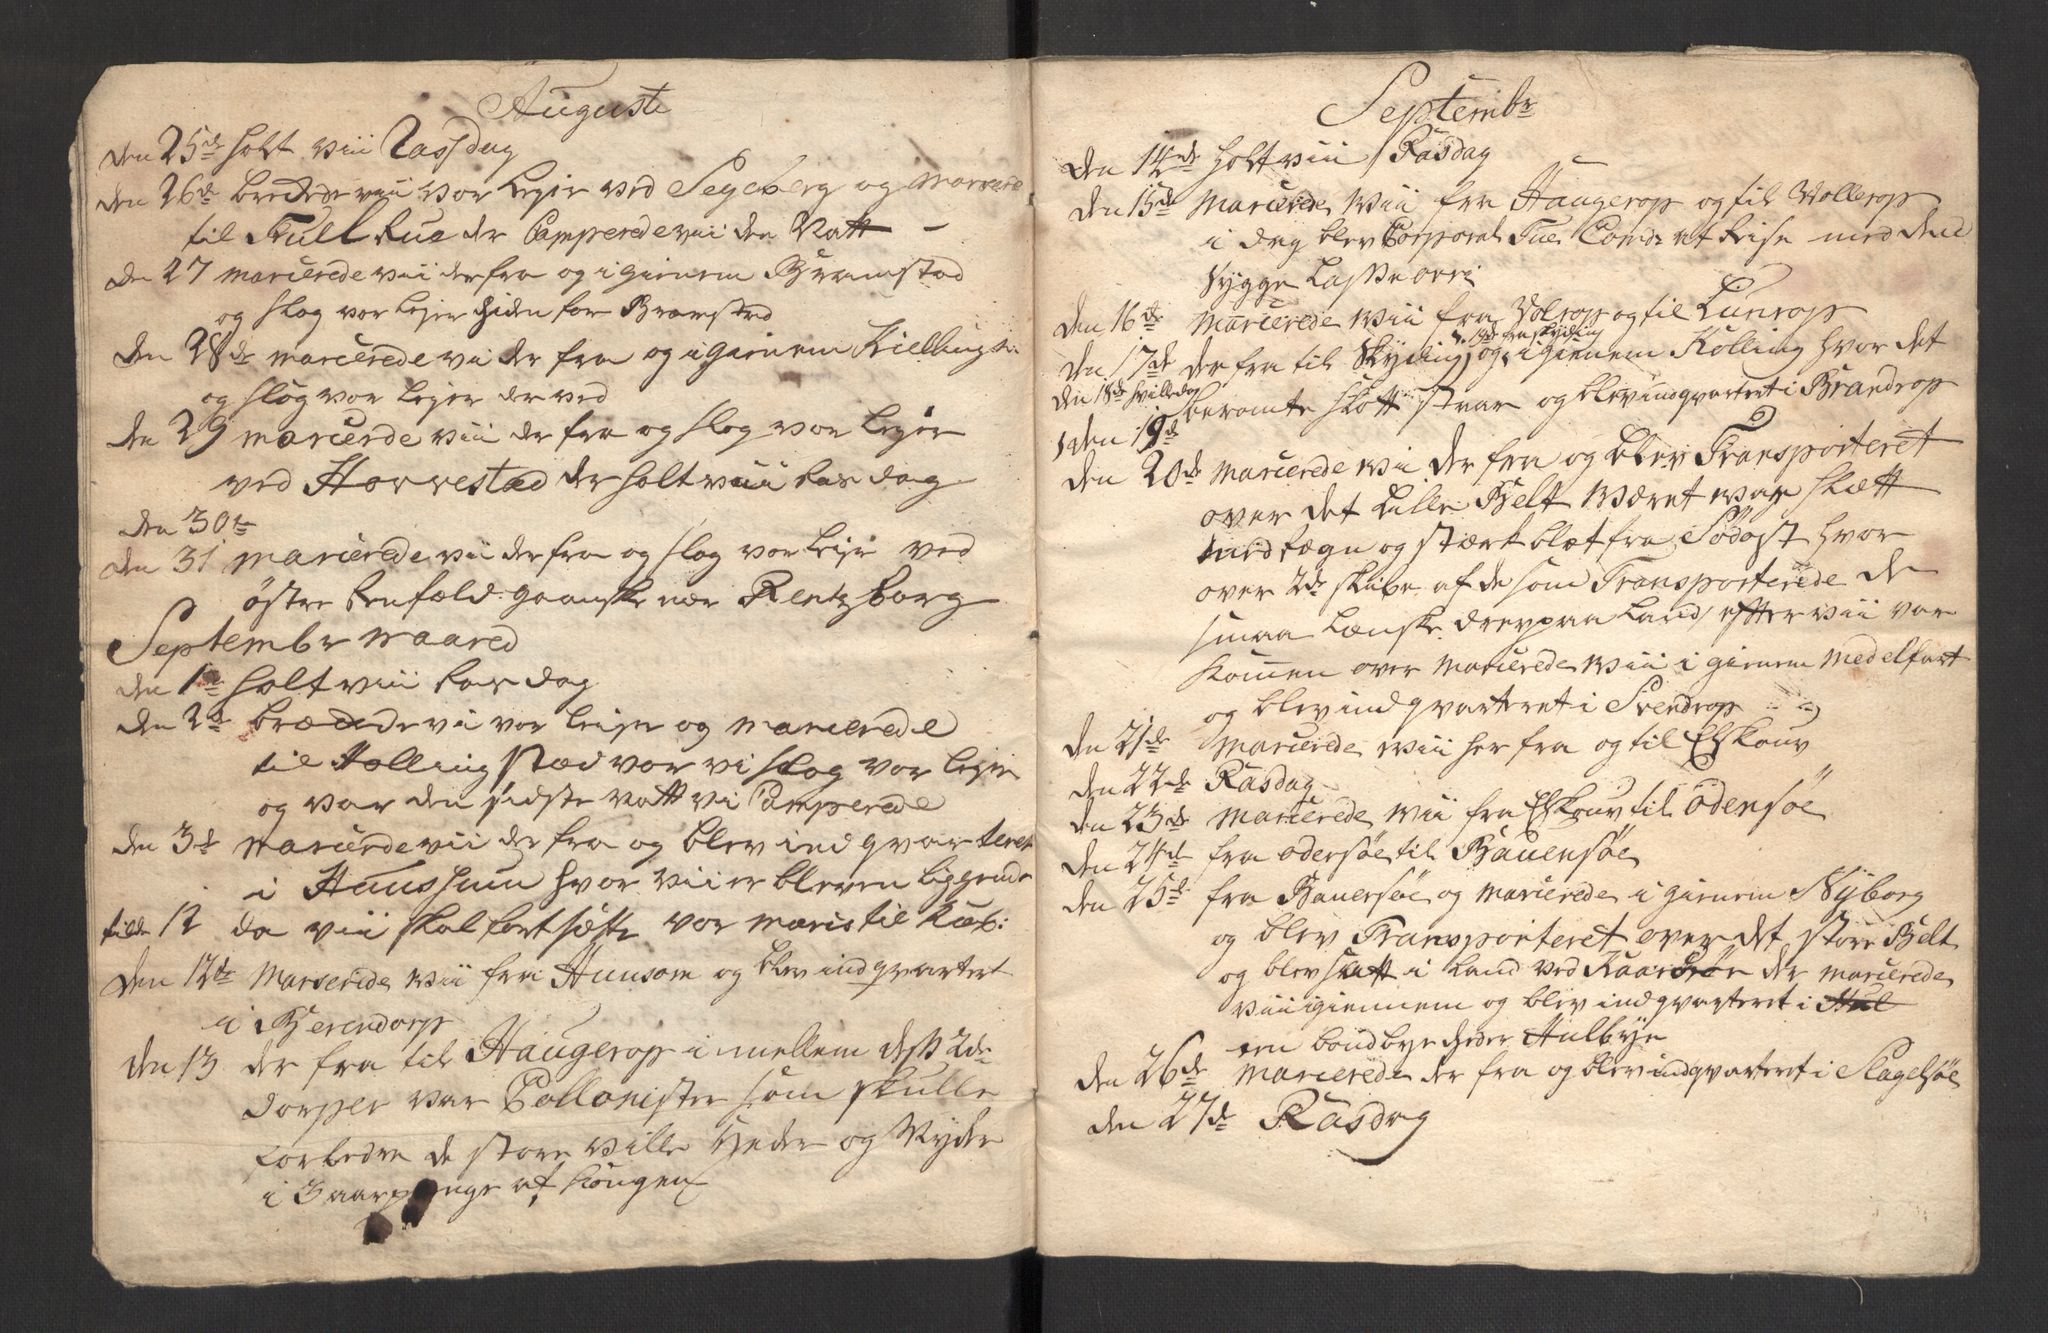 Auguste
den 25de holt vii Rassdag
den 26de brækede vii vor Legir ved Segeberg og marcerede
til Krus der Camperede vii den Natt
den 27 marcierede vii der fra og igienem Bramstad
og slog vor Lejer Hiden for Bramsted
den 28de marcierede vii der fra og igienem Kiellings
og slog vor Lejer der ved
den 29 marcierde vii der fra og slog vor Lejer
ved Horrestad der holt vii Rasdag
den 30te
den 31 marcierede vii der fra og slog vor Leiir ved
østre Renfæld ganske nær Rentzborg
Septembr maaned
den 1te holt vii Rasdag
den 2de brækede vi vor Leiir og marcierede
til Hollingstæd vor vi slog vor Legir
og var den sidste natt vi Camperede
den 3de marcierde vii der fra og blev indqvarteret
i Huushum hvor vii er bleven liggende
til den 12 da vii skal fortsætte vor marcs til Kiøb:
den 12de Marserede vii fra Huusom og blev indqvartert
i Berendorp
den 13 der fra til Haugerop i mellem diss 2de
dorper var Collonister som skulle
forbedre de store vilde Heder og Ryder
i 3 aar penge af Kongen
Septembr
den 14de holt vii Rasdag
den 15de Marcierede vii fra Haugerop og til Wollerop
i dag blev Corporal Tue Comdr at Reise med dend
Sygge Lass
den 16de Marcierede vii fra Volrop og til Lunrop
den 17de der fra til Skyding d. 19de fra Skyding og igienem Kolling hvor det
den 18de hviledag
beromte slott staar og blev indqvarteret i Brandrop
den 19de
den 20de Marcierede vii der fra og blev Transporteret
over det Lille Belt Wæret war slætt
med Rægn og stærk blæst fra Sødost hvor
over 2de skibe af de som Transporterede de
smaa Lænske drev paa Land efter vii var
Komen over Marcierede vii i gienem Medelfart
og blev indqvarteret i Svendrop
den 21de Marcierede vii her fra og til Elskouv
den 22de Rasdag
den 23de Marcierede vii fra Elskouv til Odensøe
den 24de fra odensøe til Bauensøe
den 25de fra Bauensøe og Marcierede i gienem Nyborg
og blev Transporteret over det store Belt
og blev satt i Land ved Kaarsør der marcierede
vii igiennem og blev indqvarteret i Hul
en bondbye heder Hulbye
den 26de Marcierede der fra og blev indqvarteret i Slagelsøe
den 27de Rasdag